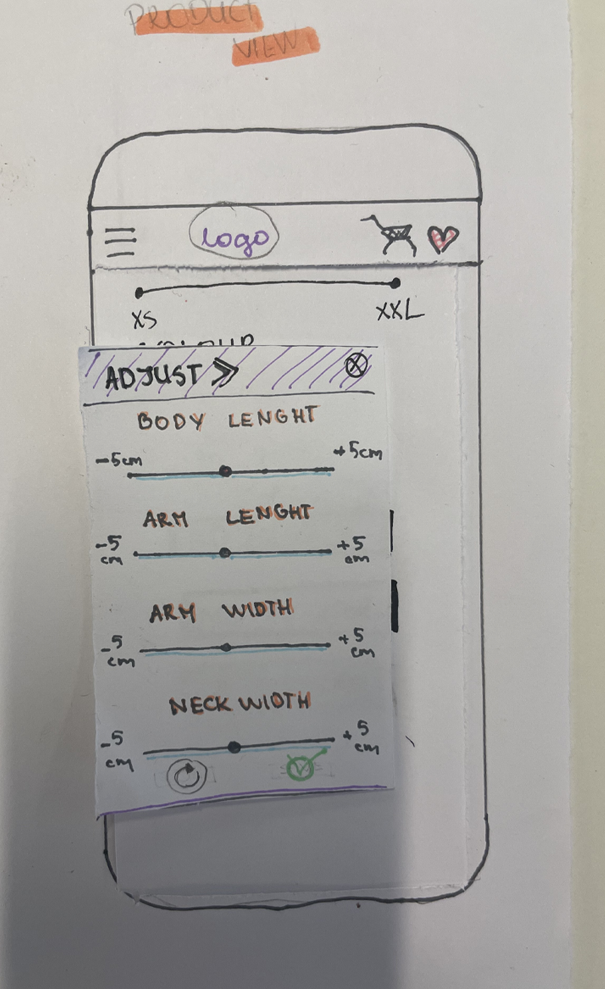 PRODUCT
VIEW
logo
XS XXL
ADJUST >>
BODY LENGHT
-5cm +5cm
ARM LENGHT
-5 cm +5 cm
ARM WIDTH
-5 cm +5 cm
NECK WIDTH
-5 cm +5 cm